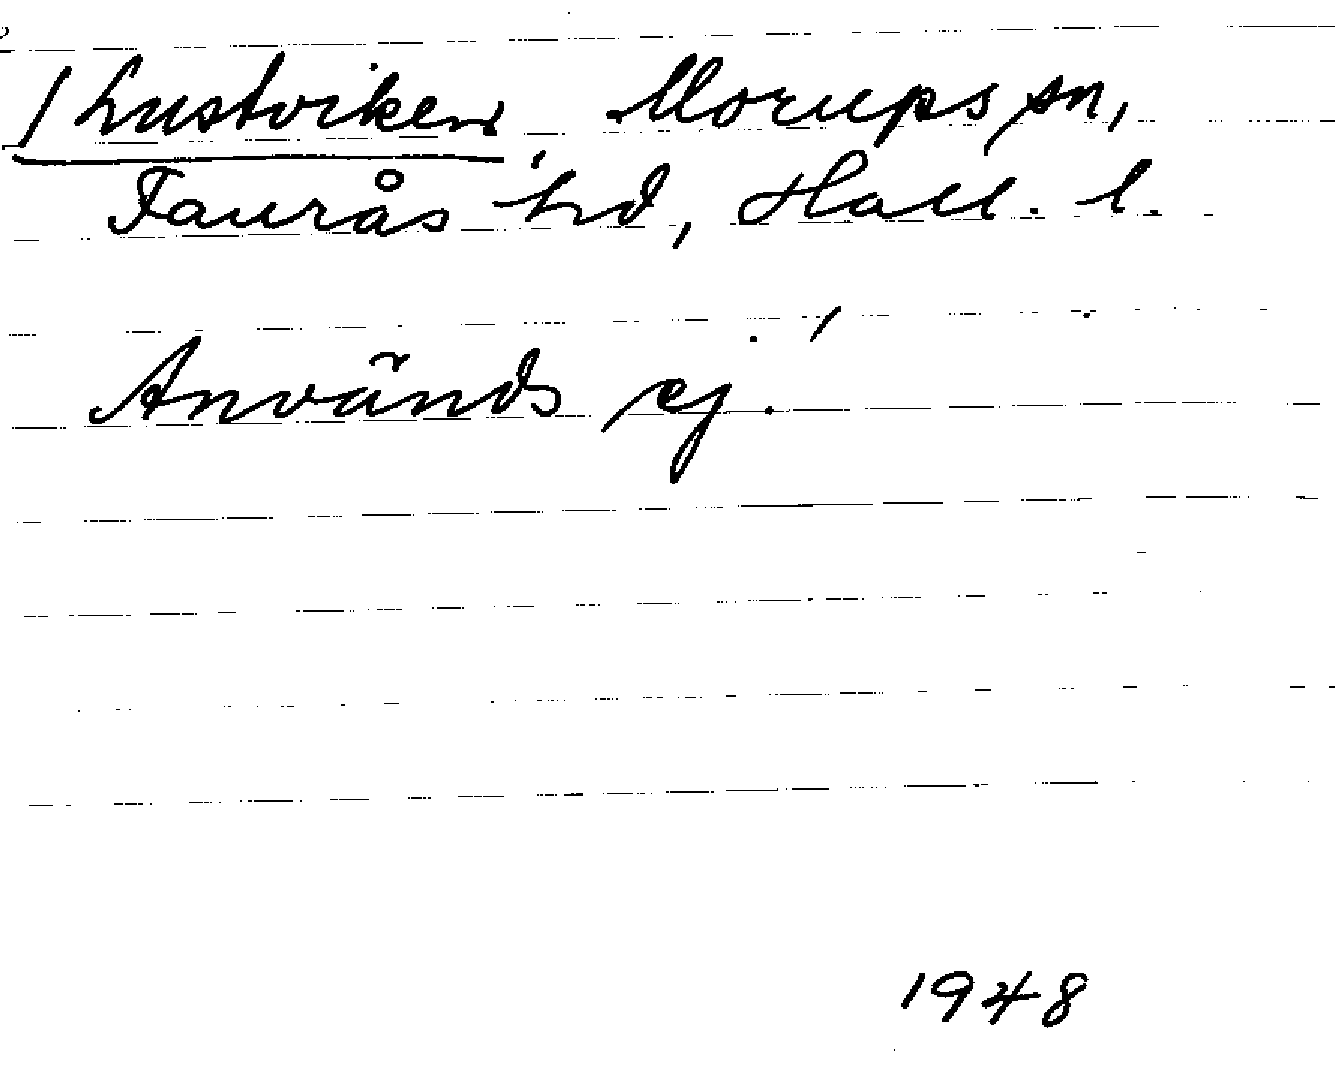 / Lustviken, Morups sn,
Faurås hd, Hall. l.
Används ej.
1948